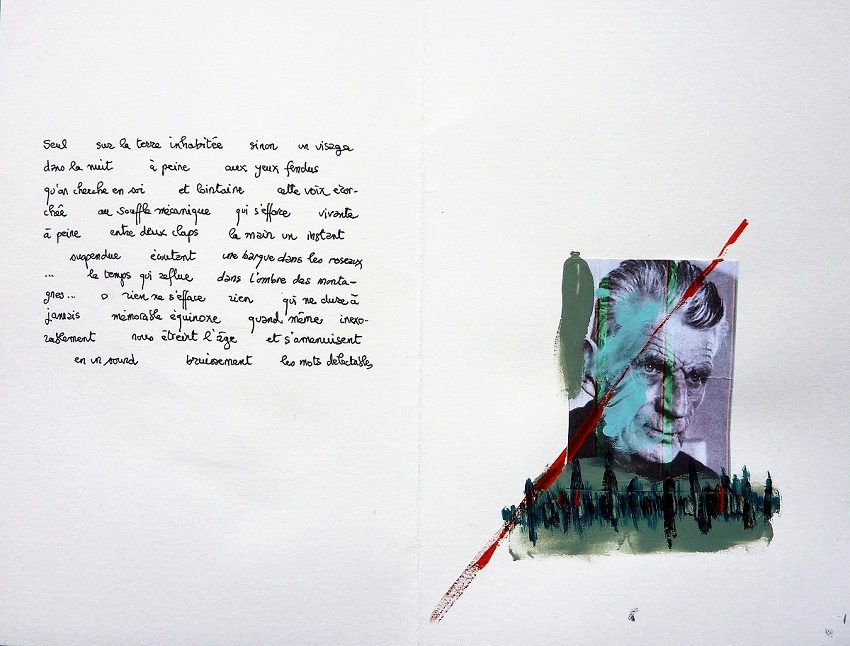 Seul sur la terre inhabitée sinon un visage
dans la nuit à peine aux yeux fendus
qu'on cherche en soi et lointaine cette voix écor-
chée au souffle mécanique qui s'efface vivante
à peine entre deux claps la main un instant
suspendue écoutent une barque dans les roseaux
... le temps qui reflue dans l'ombre des monta-
gnes... rien ne s'efface rien qui ne dure à
jamais mémorable équinoxe quand même inexo-
rablement nous étreint l'âge et s'amenuisent
en un sourd bruissement les mots délectables